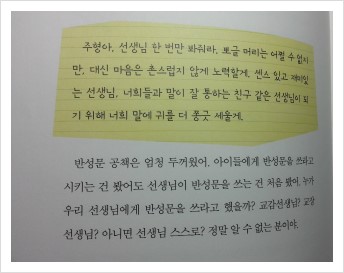 주형아, 선생님 한 번만 봐줘라. 뽀글 머리는 어쩔 수 없지
만, 대신 마음은 촌스럽지 않게 노력할게. 센스 있고 재미있
는 선생님, 너희들과 말이 잘 통하는 친구 같은 선생님이 되
기 위해 너희 말에 귀를 더 쫑긋 세울게.
반성문 공책은 엄청 두꺼웠어. 아이들에게 반성문을 쓰라고
시키는 건 봤어도 선생님이 반성문을 쓰는 건 처음 봤어. 누가
우리 선생님에게 반성문을 쓰라고 했을까? 교감선생님? 교장
선생님? 아니면 선생님 스스로? 정말 알 수 없는 분이야.